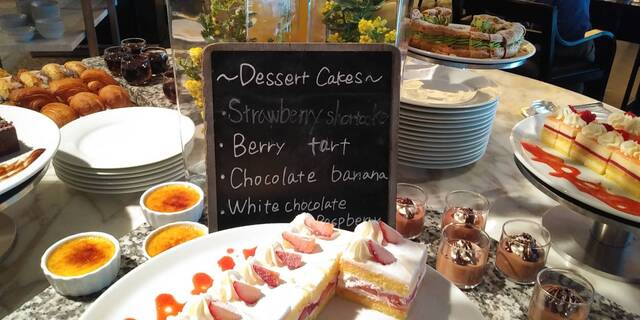 ~Dessert Cakes~
・Strawberry shortcake
・Berry tart
・Chocolate banana
・White chocolate
Raspberry